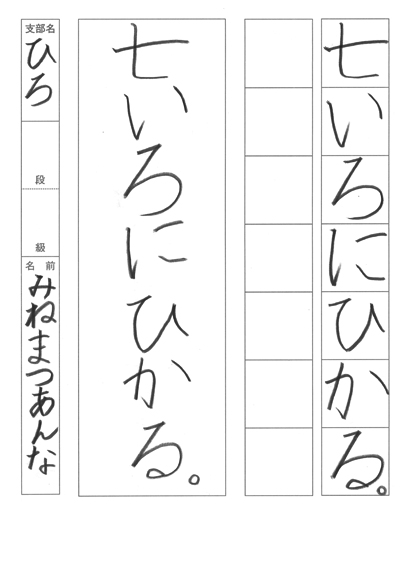 七いろにひかる。
七いろにひかる。
支部名
ひろ
段
級
名前
みねまつあんな